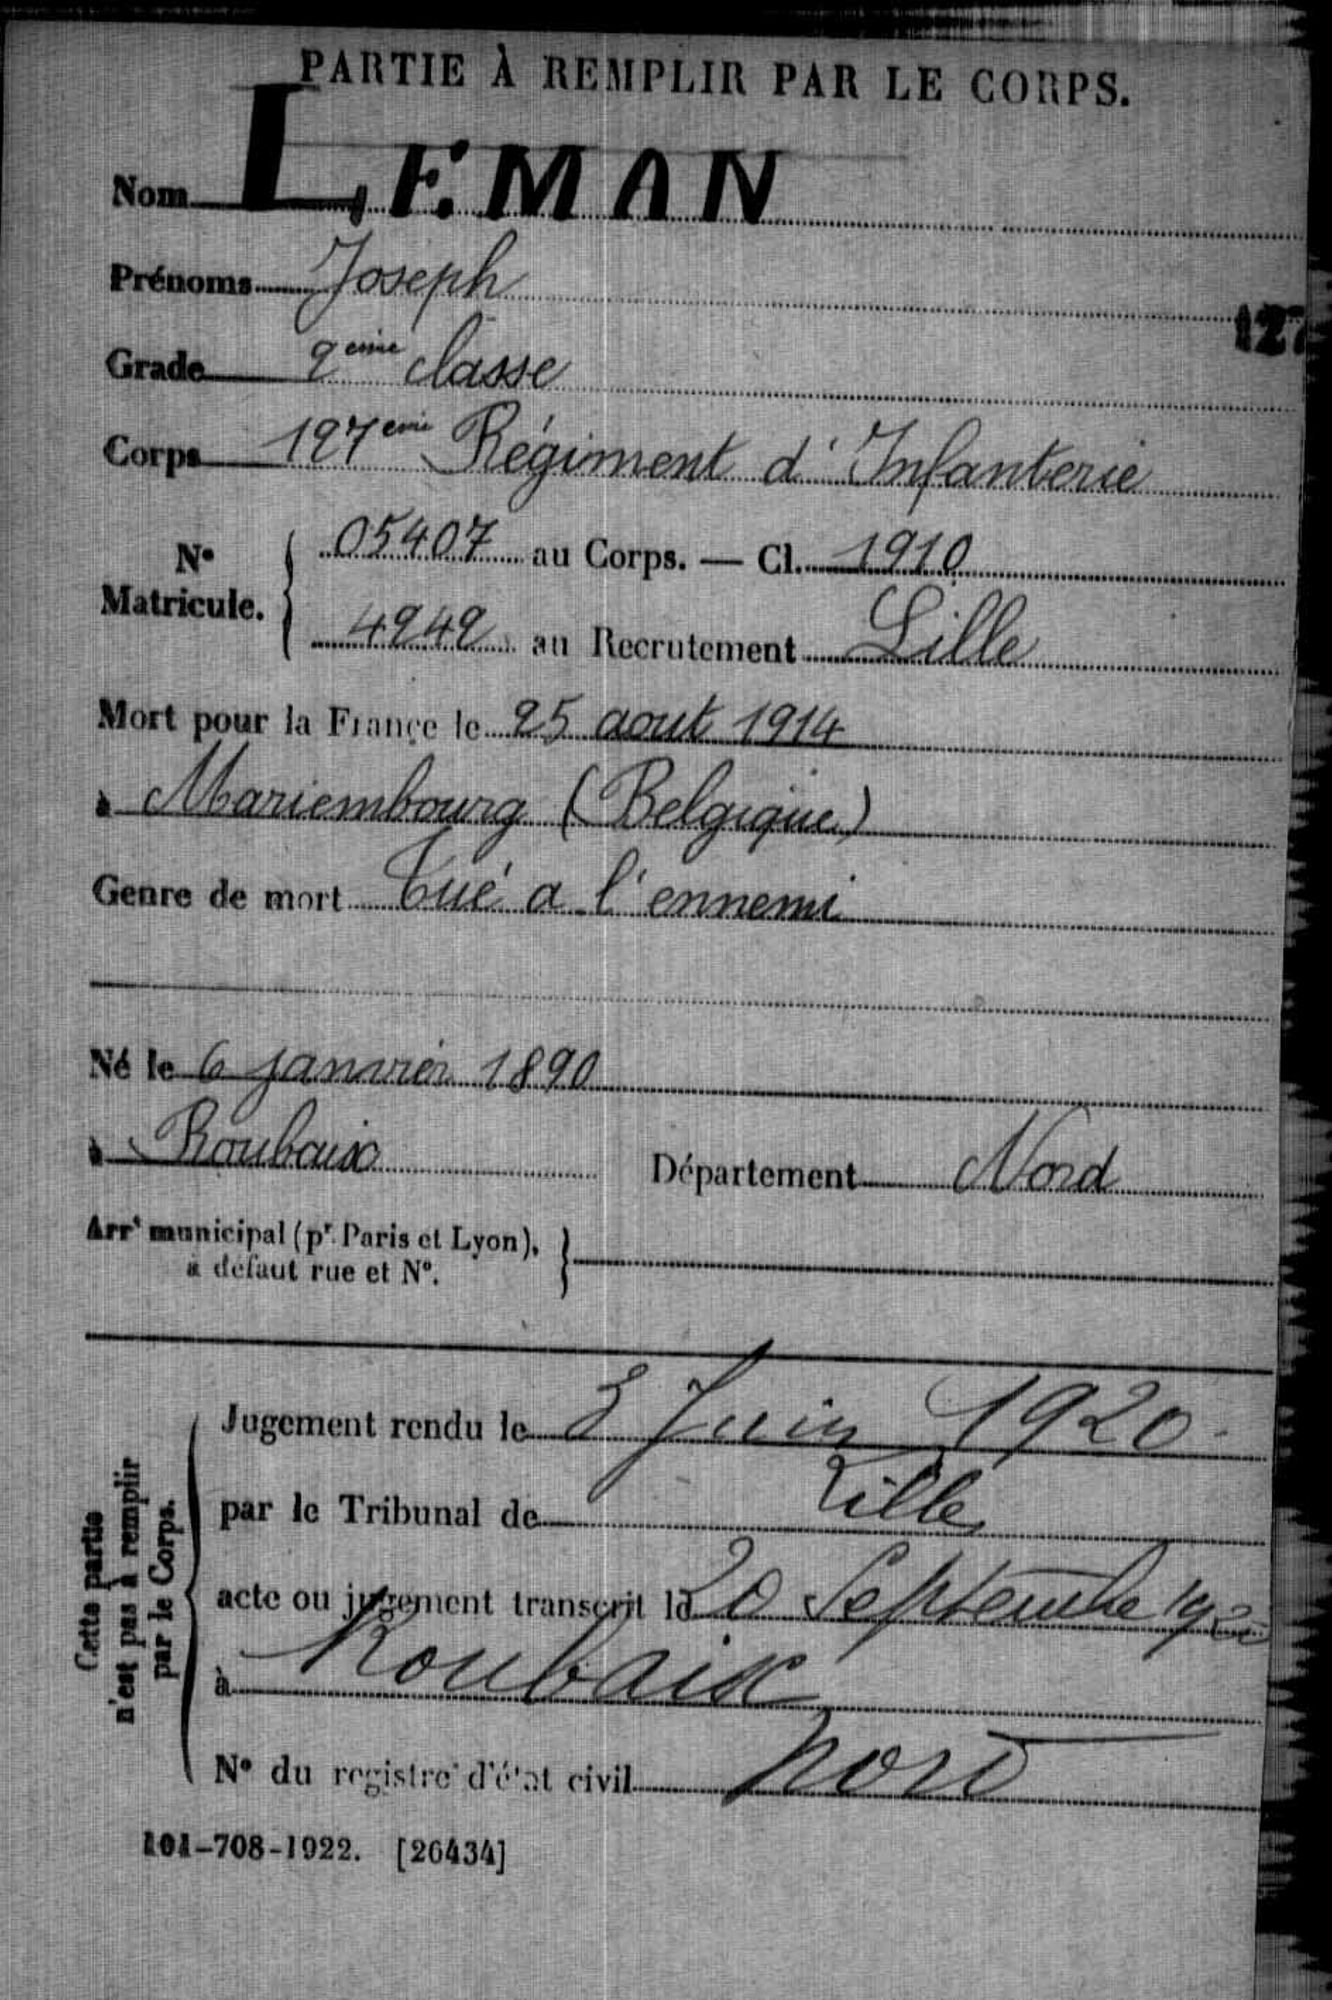 PARTIE À REMPLIR PAR LE CORPS.
Nom LEMAN
Prénoms Joseph
127
Grade 2ème classe
Corps 127ème Régiment d'Infanterie
N° Matricule. 05407 au Corps. — Cl. 1910
4242 au Recrutement Lille
Mort pour la France le 25 aout 1914
à Mariembourg (Belgique)
Genre de mort Tué a l'ennemi
Né le 6 janvier 1890
à Roubaix Département Nord
Arrt municipal (pr Paris et Lyon),
à défaut rue et N°.
Cette partie
n'est pas à remplir
par le Corps.
Jugement rendu le 3 Juin 1920
par le Tribunal de Lille
acte ou jugement transcrit le 20 Septembre 1920
à Roubaix
N° du registre d'état civil Nord
101-708-1922. [26434]